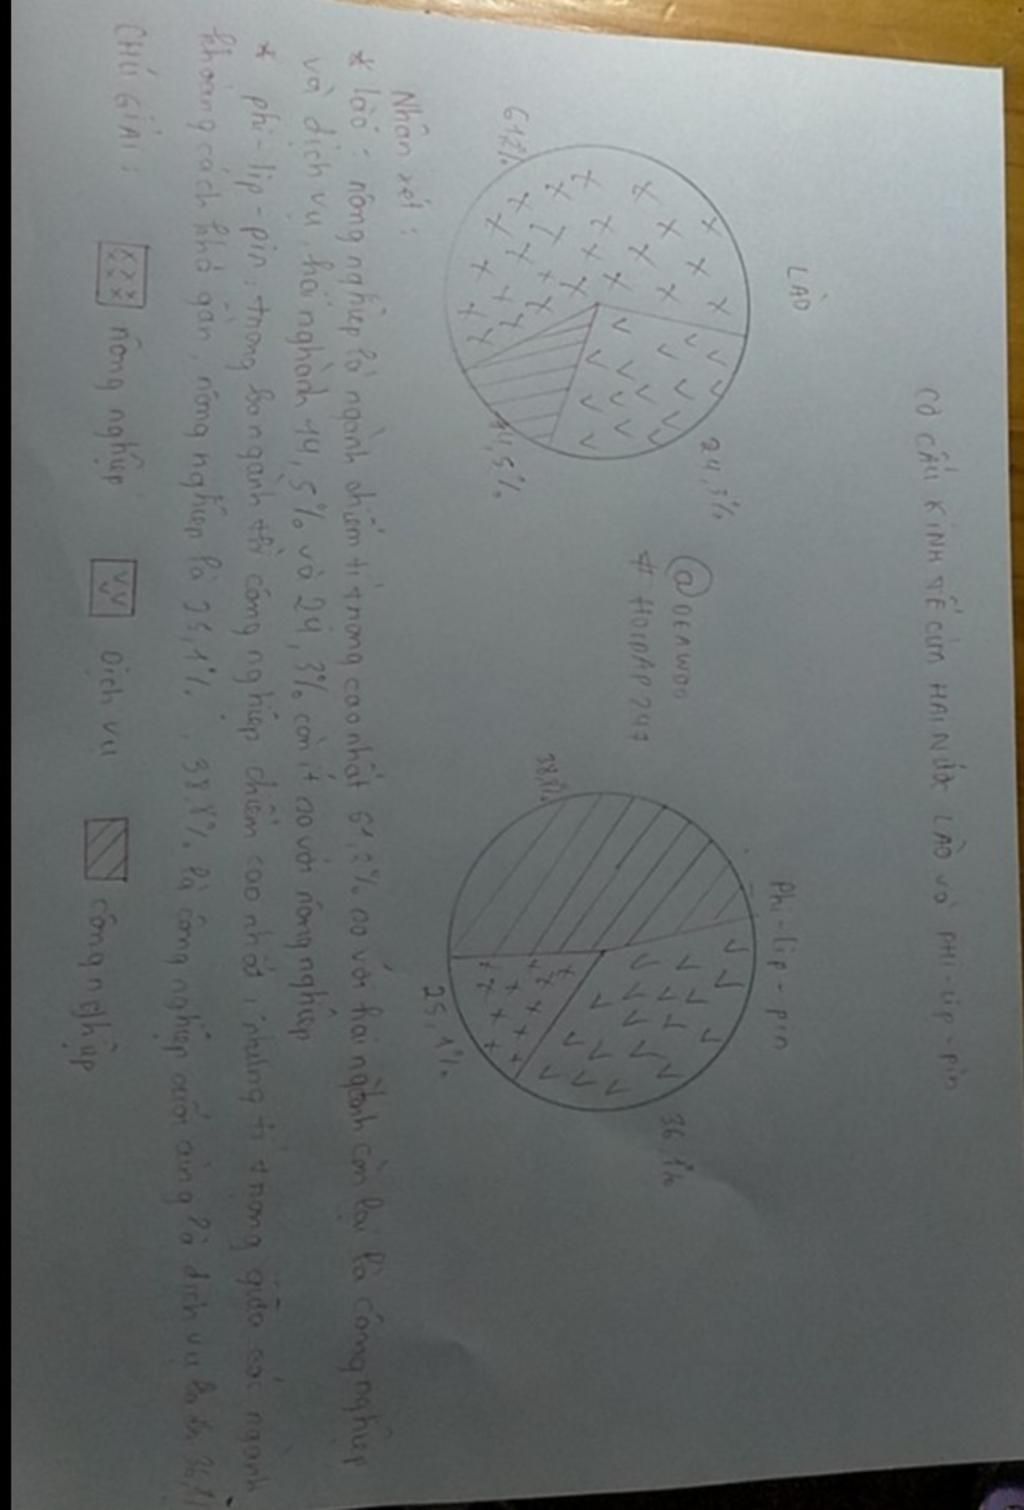 CƠ CẤU KINH TẾ CỦA HAI NƯỚC LÀO VÀ PHI-LIP-PIN
LÀO
Phi-lip-pin
24,3%
61,2%
14,5%
@DEAWOO
# HOIDAP247
36,1%
38,8%
25,1%
Nhận xét:
* Lào: nông nghiệp là ngành chiếm tỉ trọng cao nhất 61,2% so với hai ngành còn lại là công nghiệp
và dịch vụ, hai nghành 14,5% và 24,3% còn ít so với nông nghiệp
* phi-lip-pin: trong ba ngành thì công nghiệp chiếm cao nhất, nhưng tỉ trọng giữa các ngành
khoảng cách khá gần, nông nghiệp là 25,1%, 38,8% là công nghiệp cuối cùng là dịch vụ 36,1%
CHÚ GIẢI: nông nghiệp Dịch vụ công nghiệp